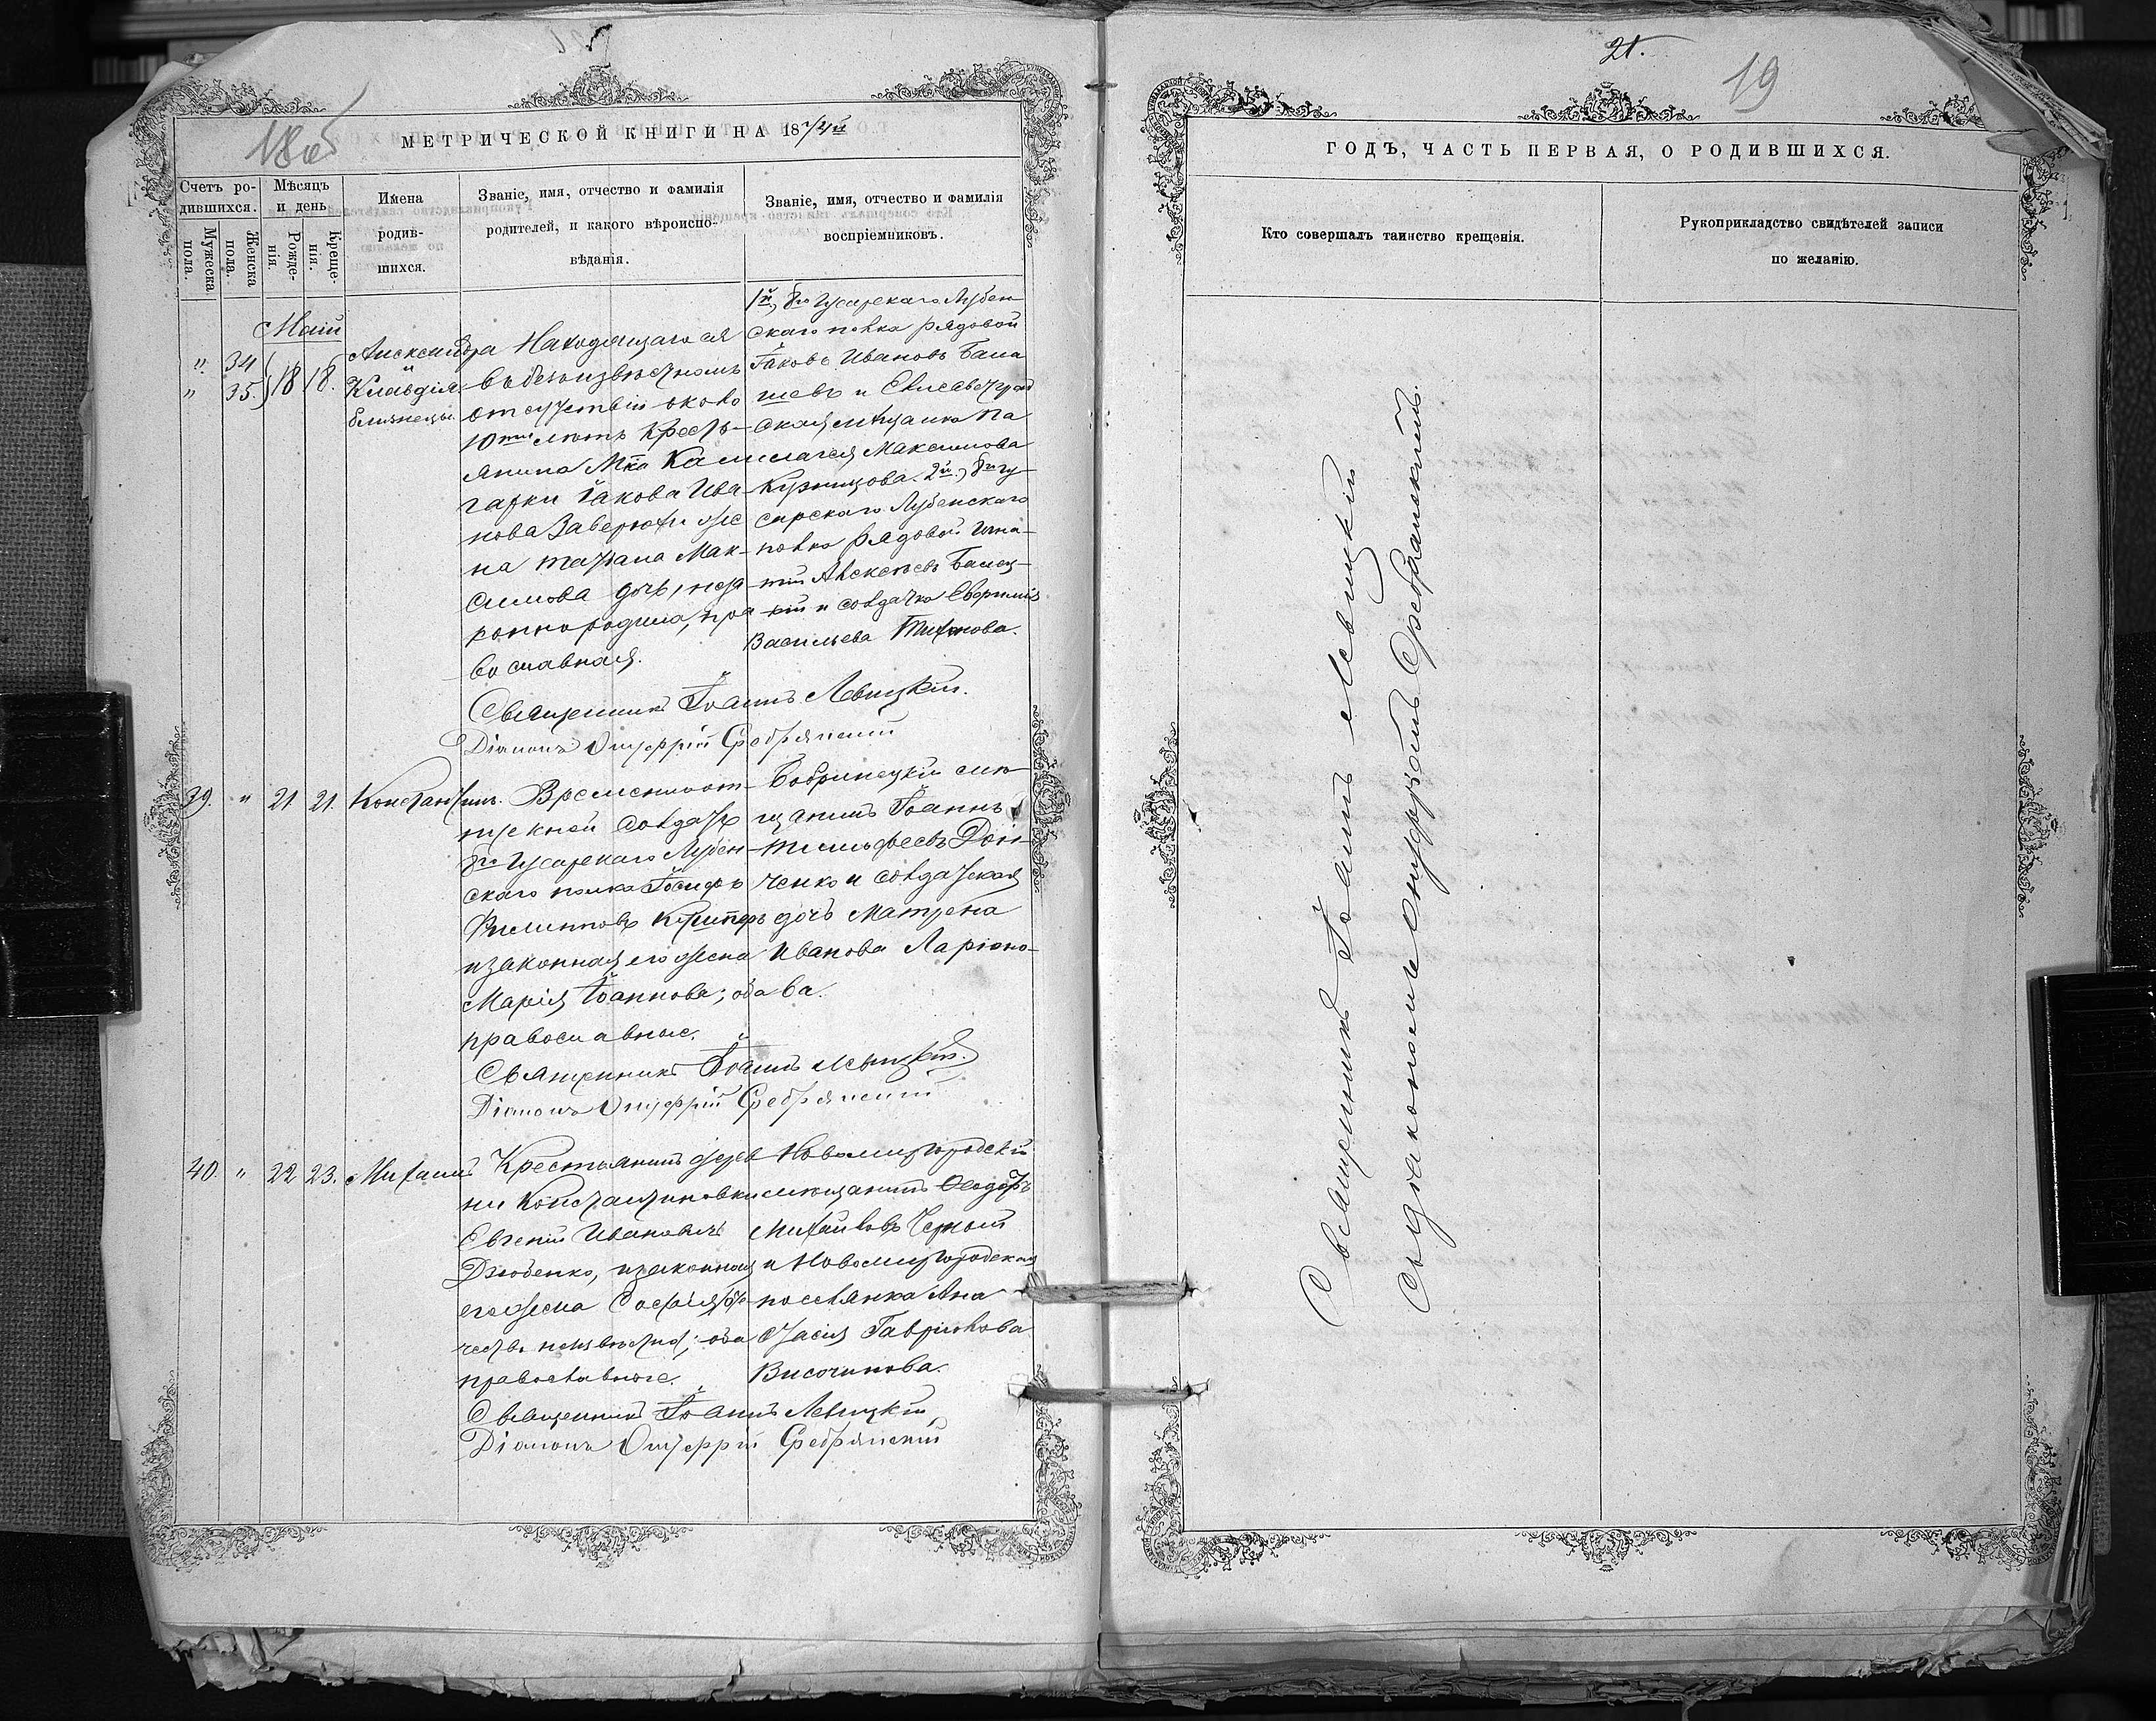 18 об
МЕТРИЧЕСКОЙ КНИГИ НА 1874й
Счетъ ро-
дившихся.
Мѣсяцъ
и день
Мужеска
пола.
Женска
пола.
Рожде-
нія.
Креще-
нія.
Имена
родив-
шихся.
Званіе, имя, отчество и фамилія
родителей, и какого вѣроиспо-
вѣданія.
Званіе, имя, отчество и фамилія
воспріемниковъ.
Май
" 34
" 35
18 18.
Александра
и
Клавдія
близнецы.
Находящагося
въ безъизвѣстномъ
отсутствіи около
10ти лѣтъ кресть-
янина М-ка
гарки Іакова Ива-
нова Заверюхи же-
на Татіана Мак-
симова дочь, неза-
конно родила, пра-
вославная.
1й, 8го Гусарскаго Лубен-
скаго полка рядовой
Іаковъ Ивановъ Бала
шевъ и Елисаветград
ская мѣщанка Па
лагея Максимова
Кузнецова. 2й, 8го гу-
сарскаго Лубенскаго
полка рядовой Игна-
тій Алексѣевъ
и солдатка Евфимія
Васильева Тихонова.
Священникъ Іоаннъ Левицкій.
Діаконъ Онуфрій Сребрянскій
39. " 21 21. Константинъ.
Временно от-
пускной солдатъ
8го Гусарскаго Лубен-
скаго полка Іосифъ
Филиповъ
и законная его жена
Марія Іоаннова; оба
православные.
Бобринецкій мѣ-
щанинъ Іоаннъ
Тимофеевъ Дон-
ченко и солдатская
дочь Матрена
Иванова Ларіоно-
ва.
Священникъ Іоаннъ Левицкій.
Діаконъ Онуфрій Сребрянскій
40. " 22 23. Михаилъ
Крестьянинъ дерев-
ни Константиновки
Евгеній Ивановъ
Дзюбенко, и законная
его жена Софія, от-
чество неизвѣстно; оба
православные.
Новомиргородскій
мѣщанинъ Ѳеодоръ
Михайловъ Черный
и Новомиргородская
поселянка Ана
стасія Гаврилова
Височинова.
Священникъ Іоаннъ Левицкій
Діаконъ Онуфрій Сребрянскій
21.
19
ГОДЪ, ЧАСТЬ ПЕРВАЯ, О РОДИВШИХСЯ.
Кто совершалъ таинство крещенія.
Рукоприкладство свидѣтелей записи
по желанію.
Священникъ Іоаннъ Левицкій
съ діакономъ Онуфріемъ Сребрянскимъ.